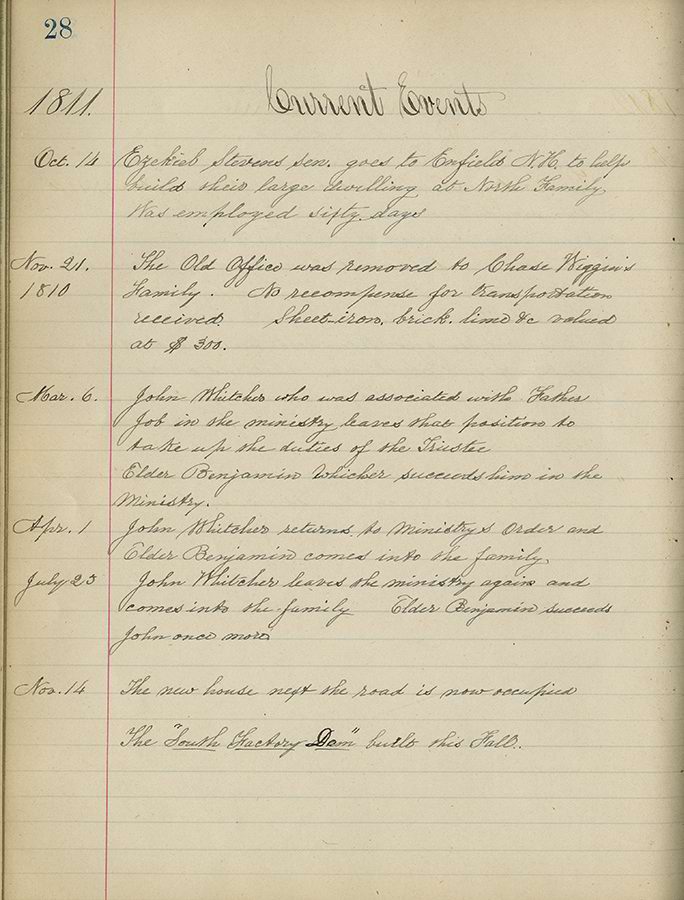 28
1811. Current Events
Oct. 14 Ezekiel Stevens sen. goes to Enfield N.H. to help
build their large dwelling at North Family.
Was employed sixty days
Nov. 21. The Old Office was removed to Chase Wiggin's
1810 Family. No recompense for transportation
received. Sheet-iron, brick, lime &c valued
at $ 300.
Mar. 6. John Whitcher who was associated with Father
Job in the ministry leaves that position to
take up the duties of the Trustee
Elder Benjamin Whicher succeeds him in the
Ministry.
Apr. 1 John Whitcher returns to Ministry's Order and
Elder Benjamin comes into the family.
July 23 John Whitcher leaves the ministry again and
comes into the family Elder Benjamin succeeds
John once more
Nov. 14 The new house next the road is now occupied
The "South Factory Dam" built this Fall.